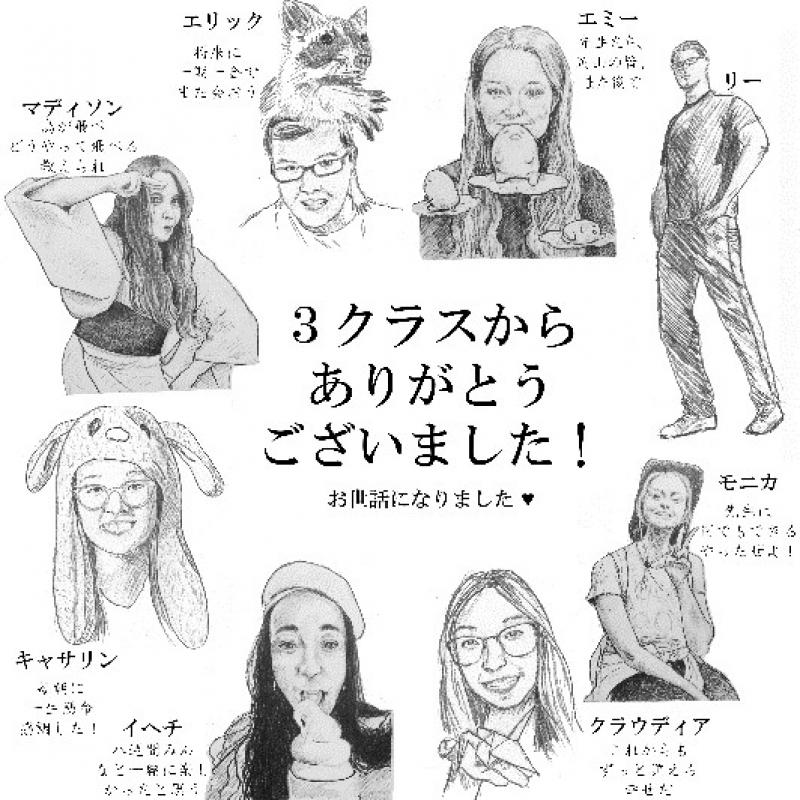 エリック
将来に
一期一会で
また会おう
エミー
また後で
リー
マディソン
鳥が飛べ
どうやって飛べる
教えられ
３クラスから
ありがとう
ございました！
お世話になりました♥
モニカ
先生に
何でもできる
やったぜよ！
キャサリン
一生懸命
感謝した！
イヘチ
八週間みん
なと一緒に楽し
かったと思う
クラウディア
これからも
ずっと